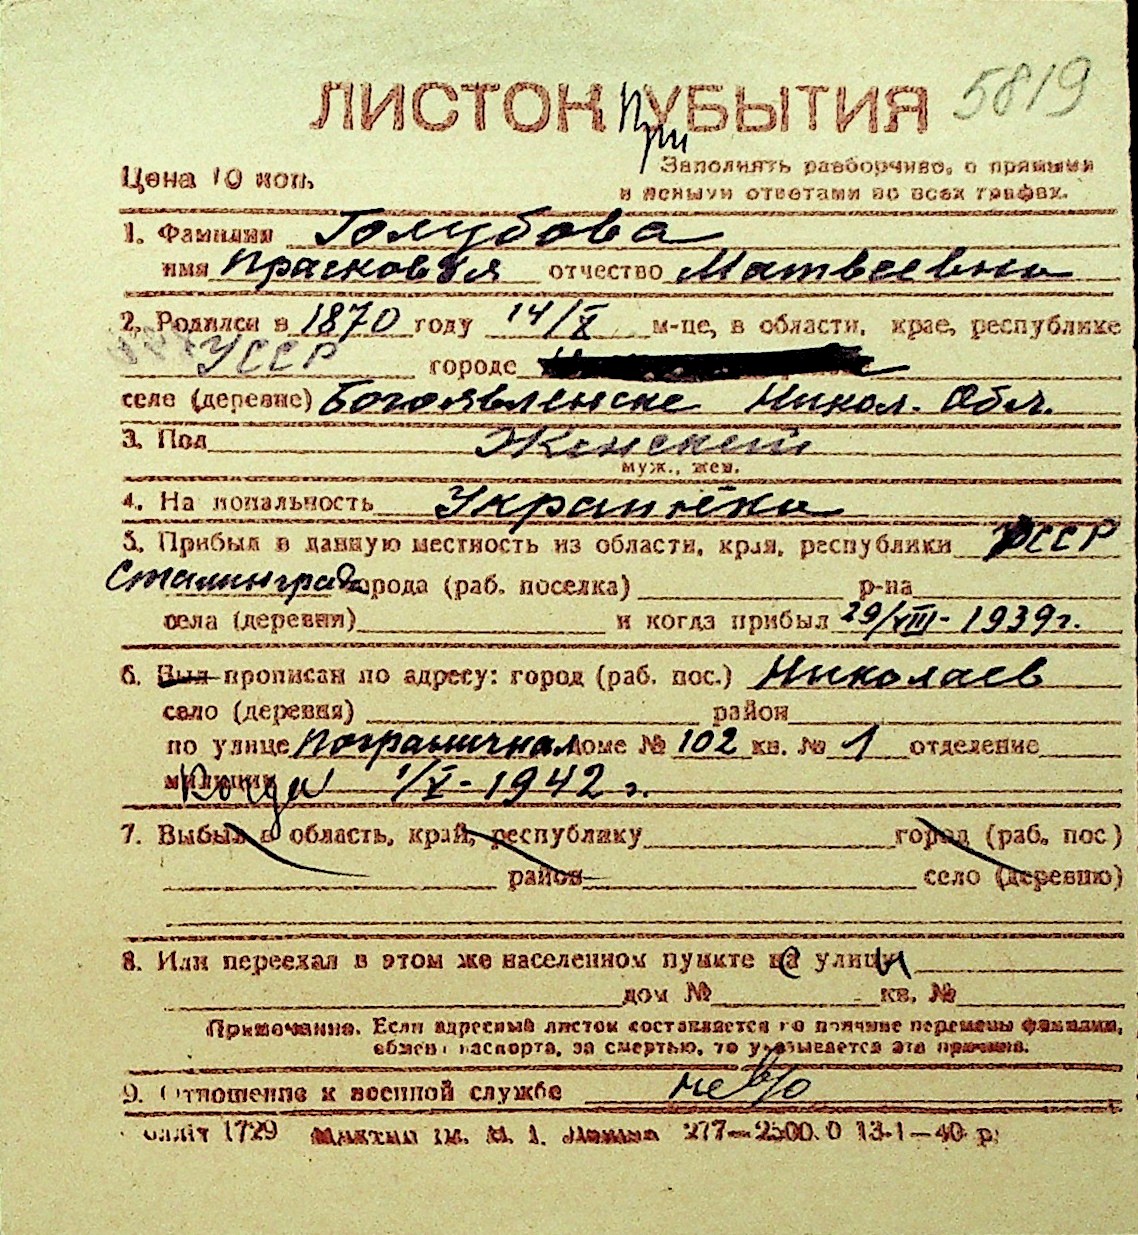 5819
ЛИСТОК При УБЫТИЯ
Цена 10 коп.
Заполнять разборчиво, с прямыми
и ясными ответами во всех графах.
1. Фамилия Голубова
имя Прасковия отчество Матвеевна
2. Родился в 1870 году 14/X м-це, в области, крае, республике
УССР городе
селе (деревне) Богоявленске Никол. Обл.
3. Пол Женский
муж., жен.
4. Национальность Украинка
5. Прибыл в данную местность из области, края, республики РССР
Сталинград города (раб. поселка) р-на
села (деревни) и когда прибыл 29/VIII - 1939 г.
6. Был прописан по адресу: город (раб. пос.) Николаев
село (деревня) район
по улице Пограничная доме № 102 кв. № 1 отделение
милиции Когда 1/X - 1942 г.
7. Выбыл в область, край, республику город (раб. пос)
район село (деревню)
8. Или переехал в этом же населенном пункте на улицу
дом № кв. №
Примечание. Если адресный листок составляется по причине перемены фамилии,
обмена паспорта, за смертью, то указывается эта причина.
9. Отношение к военной службе не в/о
1729 277—2500.0 13-1—40 р.